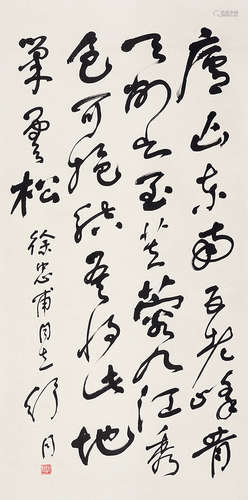 廬山东南五老峰青
天削出金芙蓉九江秀
色可揽结吾将此地
巢雲松
徐忠甫同志 舒同